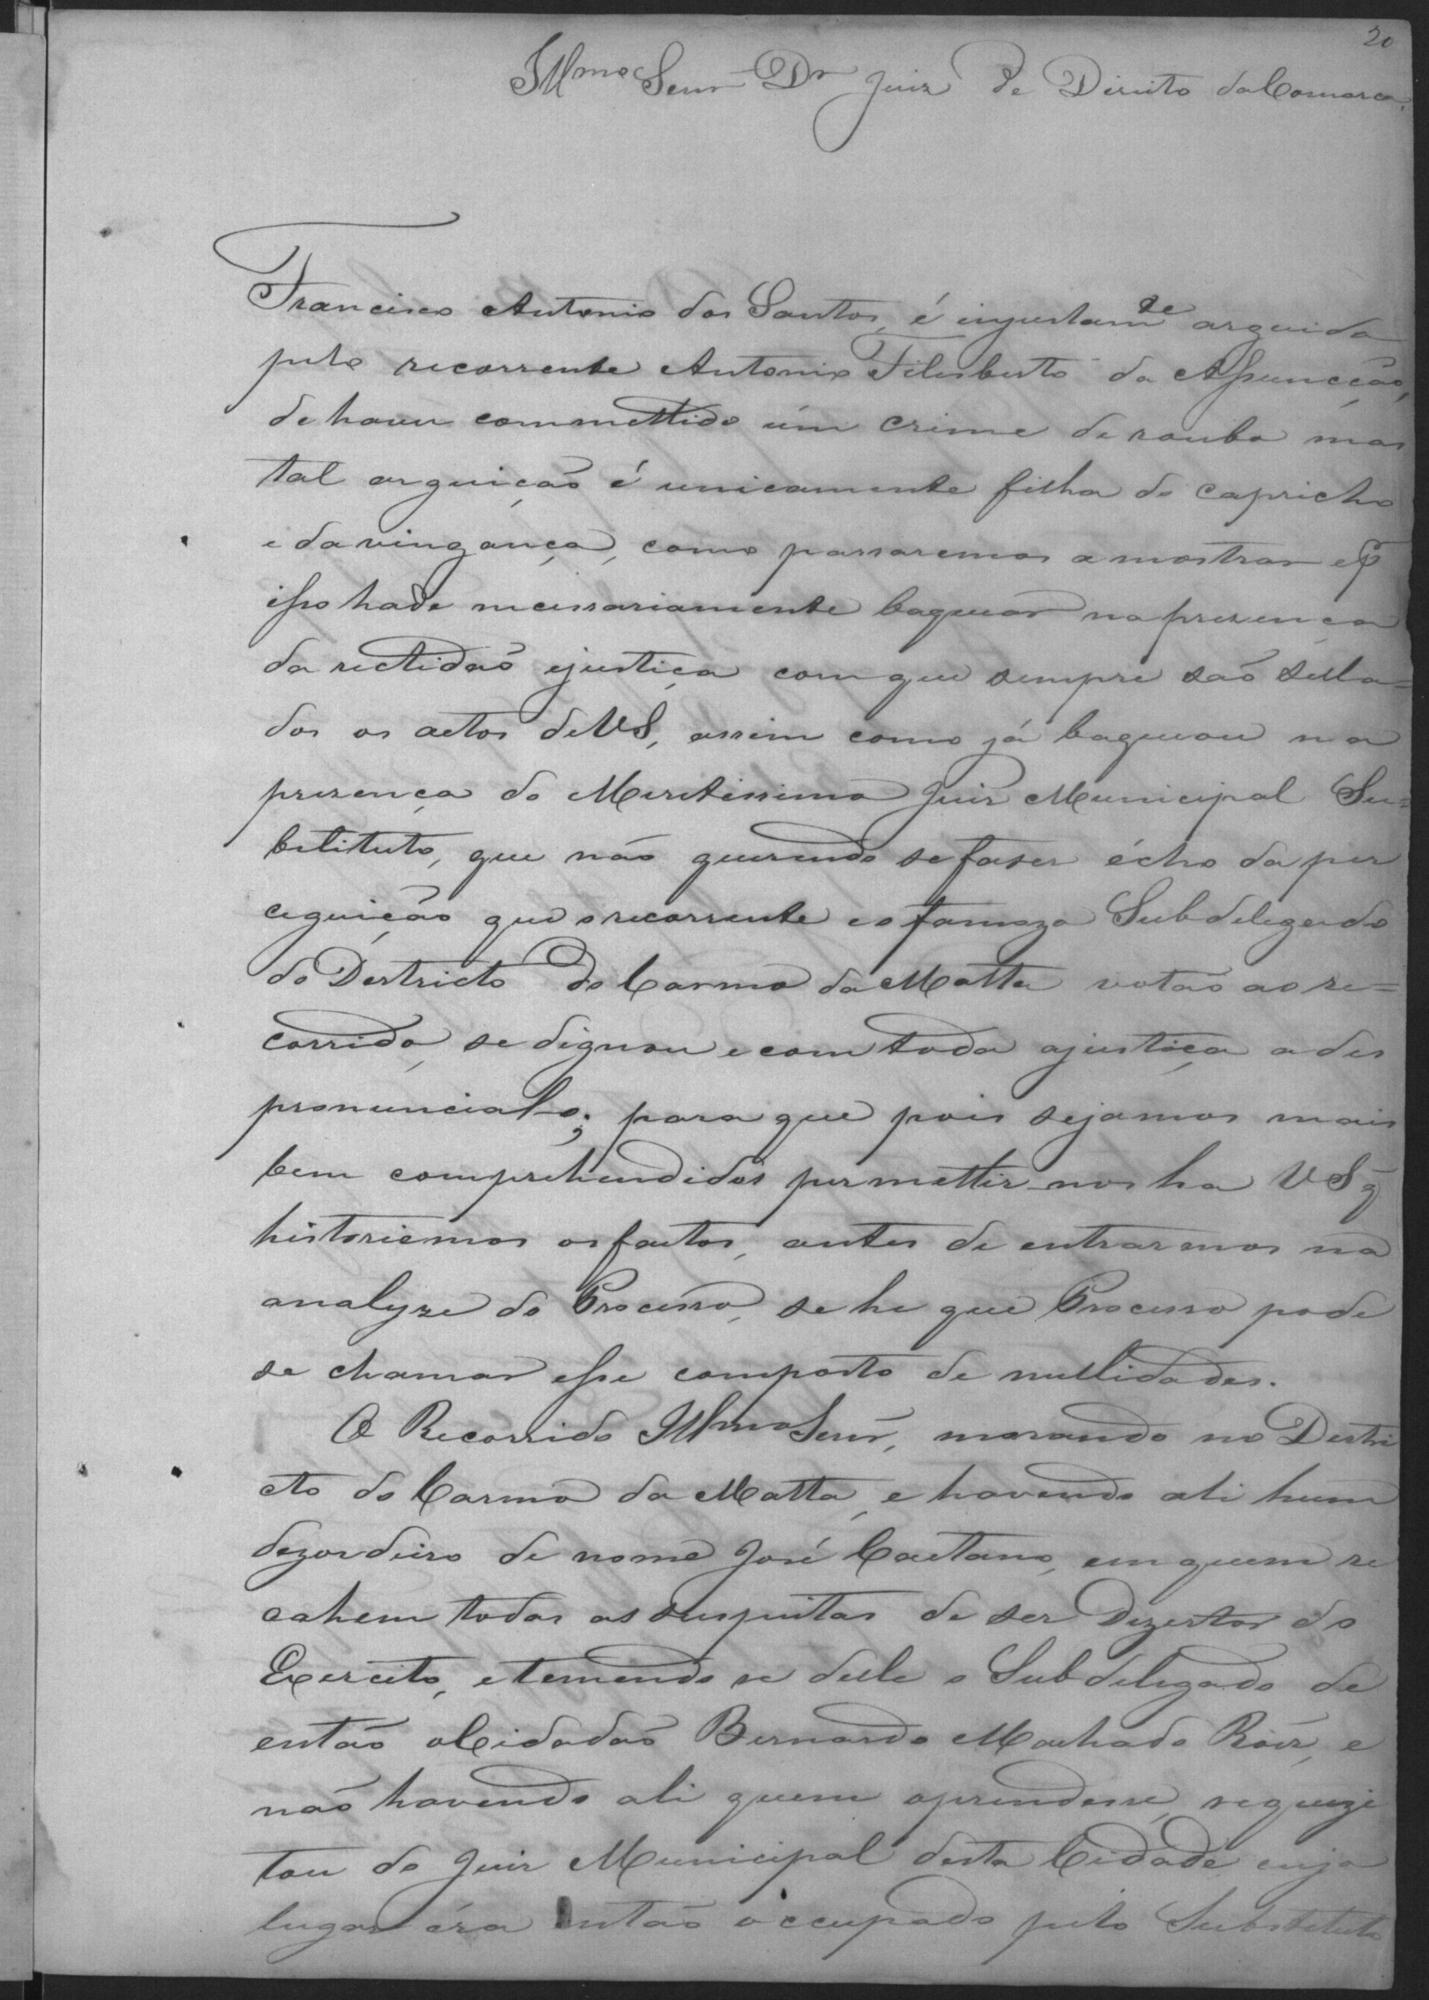 20
Illmo Senr Dr Juiz de Direito da Comarca.
Francisco Antonio dos Santos, é injustamte arguido
pelo recorrente Antonio Filisberto da Assumcção,
de haver commettido úm crime de roubo mas
tal arguição é unicamente filha do capricho
e da vingança, como passaremos a mostrar e p
isso hade necessariamente baquear na presença
da rectidão e justiça com que sempre são sella=
dos os actos de VS, assim como já baqueou na
presença do Meretissimo Juiz Municipal Su=
bstituto, que não querendo se faser écho da per
ceguição que o recorrente e o famozo Subdelegado
do Destricto do Carmo da Matta votão ao re=
corrido, se dignou e com toda a justiça a des
pronuncialo; para que pois sejamos mais
bem comprehendidos permettir-nos ha VS q̃
historiemos os factos, antes de entraremos na
analyze do Processo, se he que Processo pode
se chamar esse composto de nullidades.
O Recorrido Illmo Senr, morando no Destri
cto do Carmo da Matta, e havendo ali hum
dezordeiro de nome José Caetano, em quem re
cahem todas as suspeitas de ser Dezertor do
Exercito, e temendo se delle o Subdelegado de
então o Cidadão Bernardo Machado Roiz, e
não havendo ali quem o prendesse, requezi
tou do Juiz Municipal desta Cidade cujo
lugar éra então occupado pelo Substituto